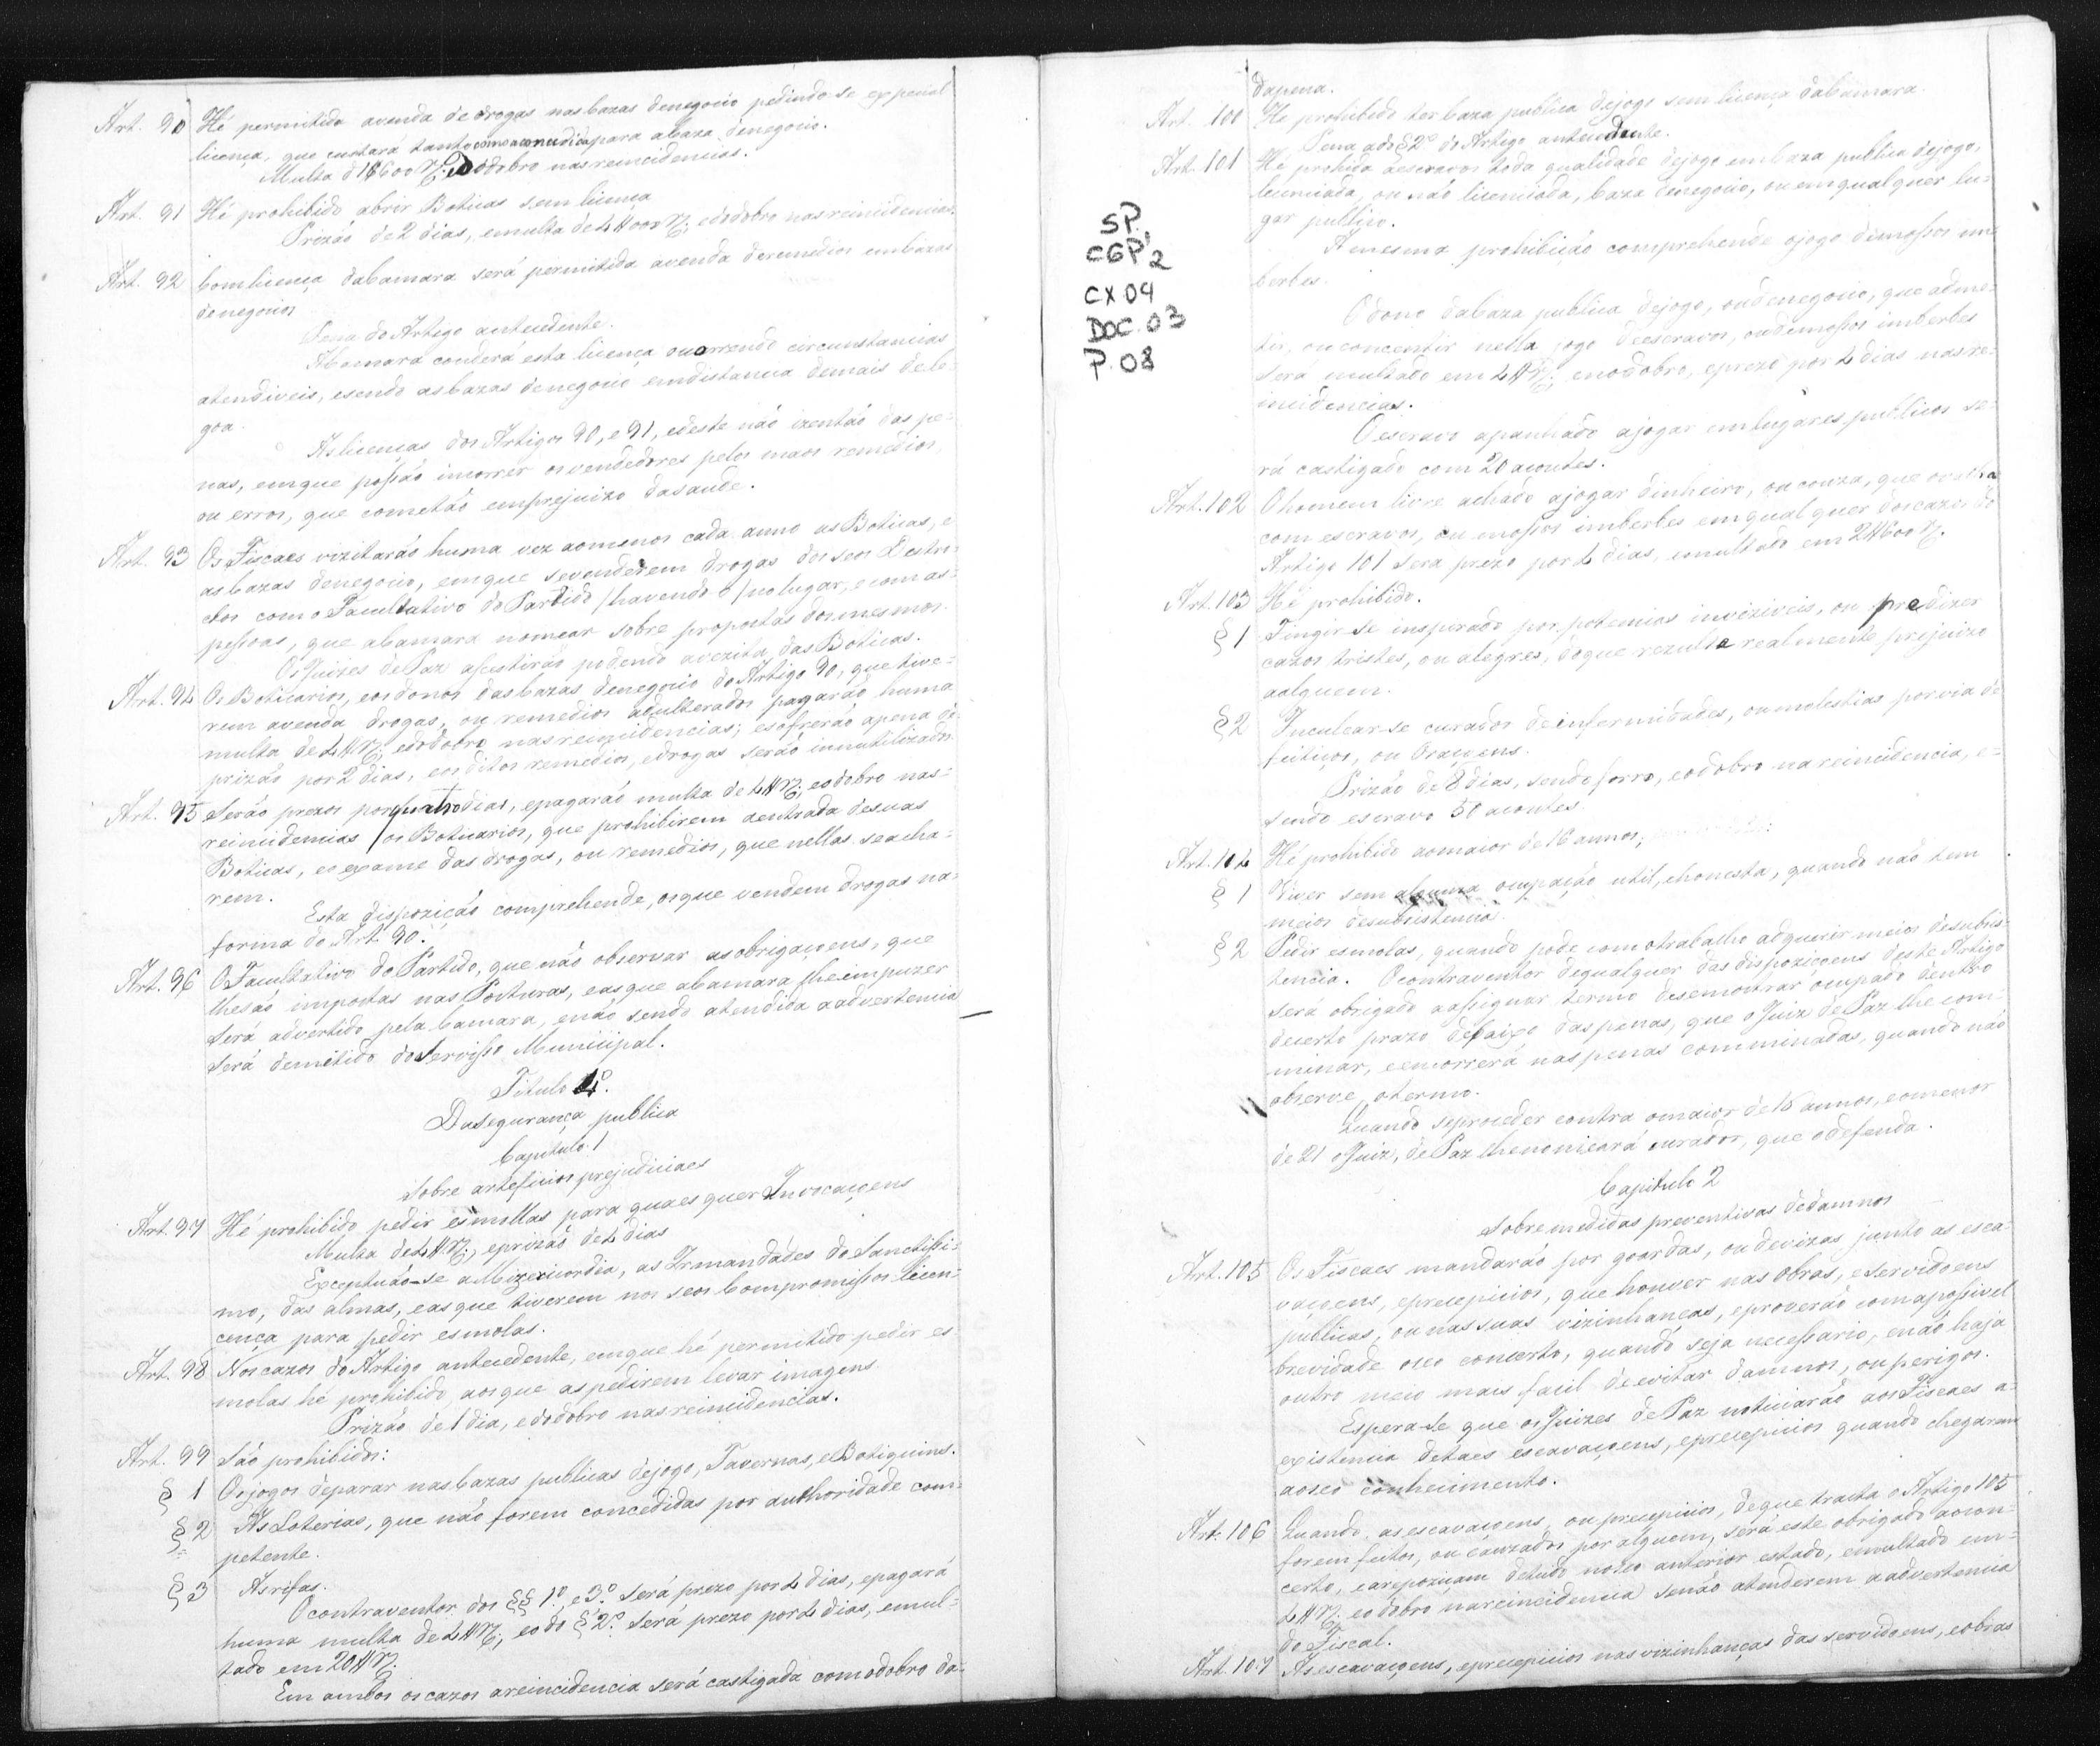 Art. 90 Hé permitido avenda de drogas nas Cazas denegocio pedindo-se expecial
licença, que custará tanto como a concedida para a Caza denegocio.
Multa d'1$600 Rs. e dobro nas reincidencias.
Art. 91 Hé prohibido abrir Boticas sem licença
Prizaõ de 2 dias, emulta de 4$000 Rs. e dodobro nas reincidencias.
Art. 92 Com licença da Camara será permitida avenda deremedios em Cazas
denegocios
Pena do Artigo antecedente.
A Camara conderá esta licença ocorrendo circunstancias
atendiveis, esendo as Cazas denegocio em distancia demais de le-
goa.
As licenças dos Artigos 90, e 91, edeste naõ izentaõ das pe-
nas, emque possaõ incorrer os vendedores pelos maos remedios,
ou erros, que cometaõ emprejuizo dasaude.
Art. 93 Os Fiscaes vizitaraõ huma vez aomenos cada anno as Boticas, e
as Cazas denegocio, emque sevenderem drogas dos seos Destri-
ctos com o Facultativo do Partido /havendo-o/ no lugar, e com as-
pessoas, que a Camara nomear sobre propostas dos mesmos.
Os Juizes de Paz assestiraõ podendo avezita das Boticas.
Art. 94 Os Boticarios, eos donos das Cazas denegocio do Artigo 90, que tive-
rem avenda drogas, ou remedios adulterados pagaraõ huma
multa de 4$Rs. e dodobro nas reincidencias; e sofreraõ apena de
prizaõ por 2 dias, eos ditos remedios, e drogas seraõ innutilizados.
Art. 95 Seraõ prezos por quatro dias, epagaraõ multa de 4$Rs. eodobro nas-
reincidencias os Boticarios, que prohibirem aentrada desuas
Boticas, eoexame das drogas, ou remedios, que nellas seacha-
rem.
Esta dispoziçaõ comprehende, osque vendem drogas na-
forma do Art. 90.
Art. 96 O Facultativo do Partido, que naõ observar as obrigaçoens, que
lhesaõ impostas nas Posturas, easque a Camara lheimpuzer
será advertido pela Camara, enaõ sendo atendida aadvertencia
será demitido do Servisso Municipal.
Titulo 4º.
Dasegurança publica
Capitulo 1
Sobre arteficios prejudiciaes
Art. 97 Hé prohibido pedir esmollas para quaes quer Invocaçoens
Multa de 4$Rs., eprizaõ de 4 dias
Exceptuaõ-se a Mizericordia, as Irmandades do Sanctissi-
mo, das almas, easque tiverem nos seos Compromissos licen-
cença para pedir esmolas.
Art. 98 Nos cazos do Artigo antecedente, emque hé permitido pedir es-
molas hé prohibido, aos que aspedirem levar imagens
Prizaõ de 1 dia, edodobro nas reincidencias.
Art. 99 Saõ prohibidos:
§ 1 Os jogos deparar nas Cazas publicas dejogo, Tavernas, e Botiquins.
§ 2 As Loterias, que naõ forem concedidas por authoridade com-
petente.
§ 3 As rifas.
O contraventor dos §§ 1º, e 3º. será prezo por 4 dias, epagará
huma multa de 4$Rs., eo do § 2º. será prezo por 4 dias, emul-
tado em 20$Rs.
Em ambos os cazos areincidencia será castigada com odobro da-
dapena.
Art. 100 He prohibido ter Caza publica dejogo sem licença da Camara.
Pena a do § 2º do Artigo antecedente.
Art. 101 Hé prohida aescravos toda qualidade dejogo em Caza publica dejogo,
licenciada, ou naõ licenciada, Caza denegocio, ou emqualquer lu-
gar publico.
A mesma prohibiçaõ comprehende ojogo demossos im-
berbes.
O dono da Caza publica dejogo, oudenegocio, que adme-
tir, ou concentir nella jogo deescravos, oudemossos imberbes
será multado em 4$Rs., enodobro, eprezo por 4 dias nas re-
incidencias.
O escravo apanhado ajogar em lugares publicos se-
rá castigado com 20 açoutes.
Art. 102 O homem livre achado ajogar dinheiro, ou couza, que ovalha
com escravos, ou mossos imberbes emqual quer dos cazos do
Artigo 101 sera prezo por 4 dias, emultado em 2$600 Rs.
Art. 103 Hé prohibido.
§ 1 Fingir-se inspirado por potencias inveziveis, ou predizer
cazos tristes, ou alegres, doque rezulte realmente prejuizo
aalguem.
§ 2 Inculcar-se curador deinfermidades, ou molestias por via de
feitiços, ou Oraçoens.
Prizaõ de 8 dias, sendo forro, eodobro na reincidencia, e-
sendo escravo 50 acoutes.
Art. 104 Hé prohibido aomaior de 16 annos;
§ 1 Viver sem alguma ocupaçaõ util, ehonesta, quando naõ tem
meios desubsistencia.
§ 2 Pedir esmolas, quando pode com otrabalho adquerir meios desubsis-
tencia. O contraventor dequalquer das dispoziçoens deste Artigo
será obrigado aassignar termo desemostrar ocupado dentro
decerto prazo debaixo das penas, que o Juiz de Paz lhe com-
minar, eencorrerá nas penas comminadas, quando naõ
observe otermo.
Quando seproceder contra omaior de 16 annos, eomenor
de 21 o Juiz de Paz lhenomeará curador, que odefenda.
Capitulo 2
Sobre medidas preventivas dedamnos
Art. 105 Os Fiscaes mandaraõ por goardas, ou devizas junto as esca-
vaçoens, eprecepicios, que houver nas obras, eservidoens
publicas, ou nas suas vizinhanças, eproveraõ com apossivel
brevidade oseo concerto, quando seja necessario, enaõ haja
outro meio mais facil deevitar damnos, ou perigos.
Espera-se que os Juizes de Paz noticiaraõ aos Fiscaes a-
existencia detaes escavaçoens, eprecepicios quando chegarem
aoseo conhecimento.
Art. 106 Quando, as escavaçoens, ou precepicios, deque tracta o Artigo 105
forem feitos, ou cauzados por alguem, será este obrigado aocon-
certo, earepozicam detudo noseo anterior estado, emultado em-
4$Rs. eodobro nareincidencia senaõ atenderem aadvertencia
do Fiscal.
Art. 107 As escavaçoens, eprecepicios nas vizinhanças das servidoens, eobras
SP.
CGP, 2
CX 04
DOC. 03
P. 08